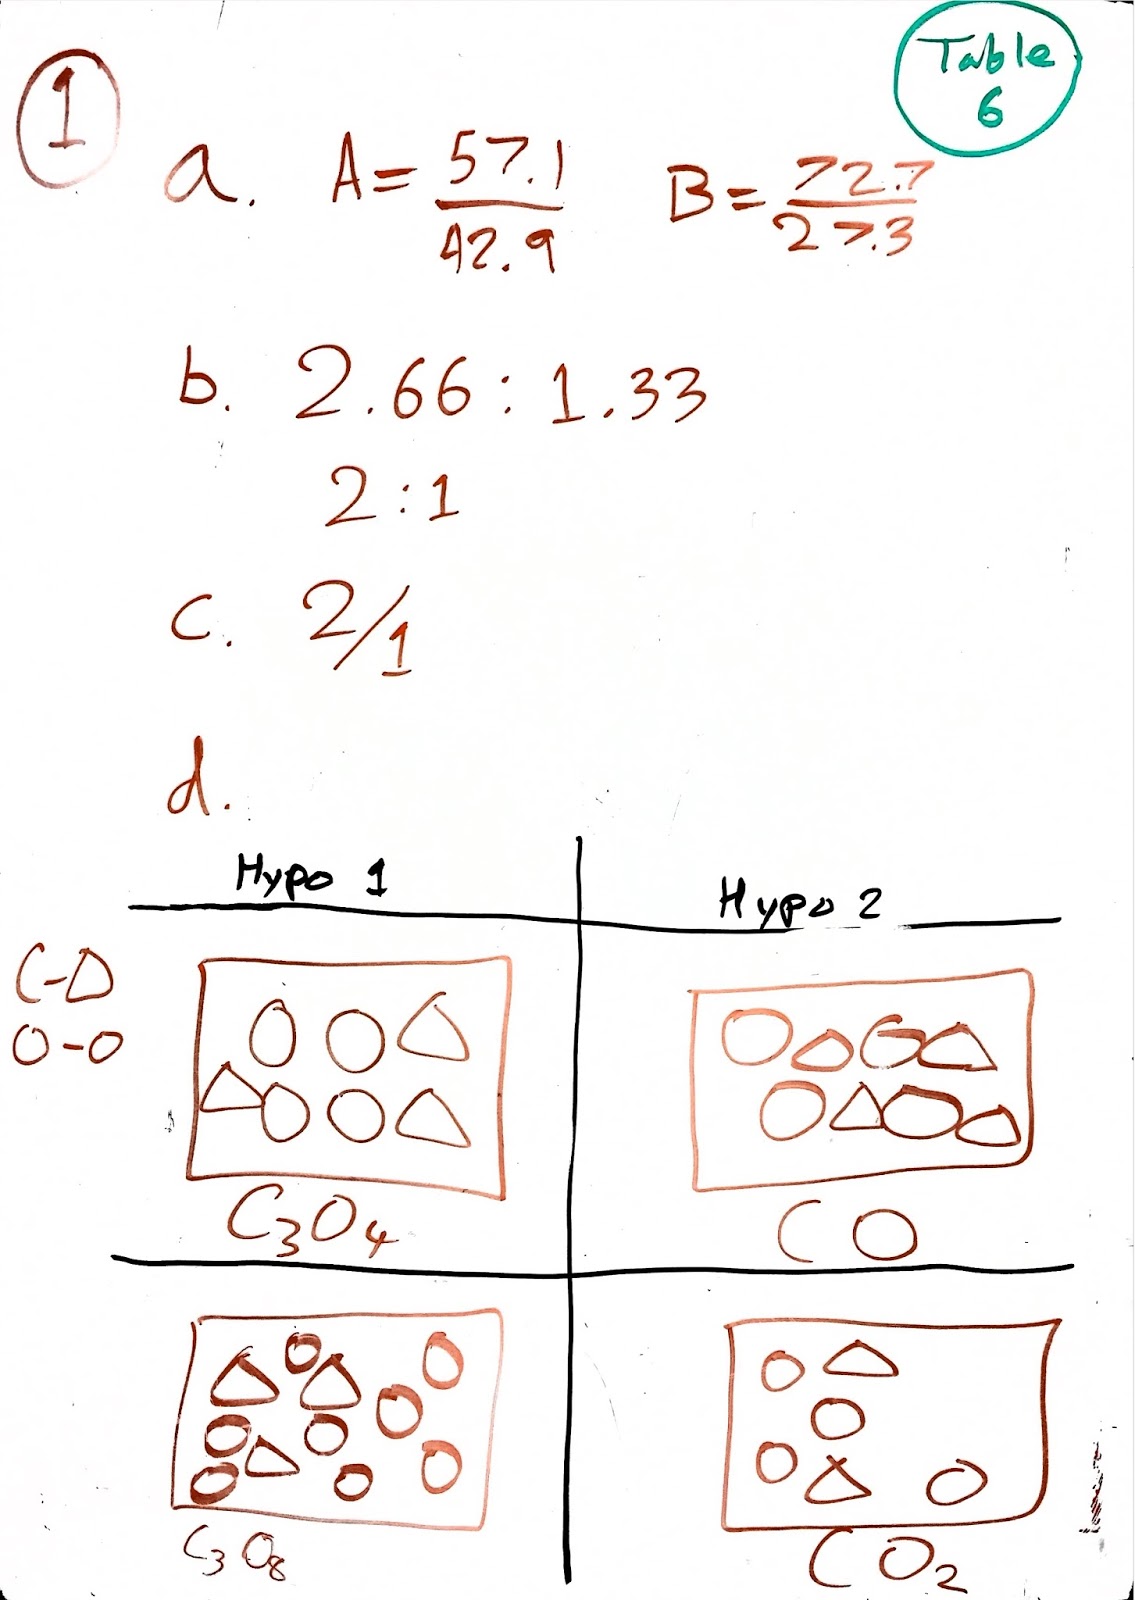 1
Table
6
a. A = 57.1/42.9 B = 72.7/27.3
b. 2.66 : 1.33
2 : 1
c. 2/1
d.
Hypo 1 Hypo 2
C-Δ
O-O
C₃O₄ CO
C₃O₈ CO₂